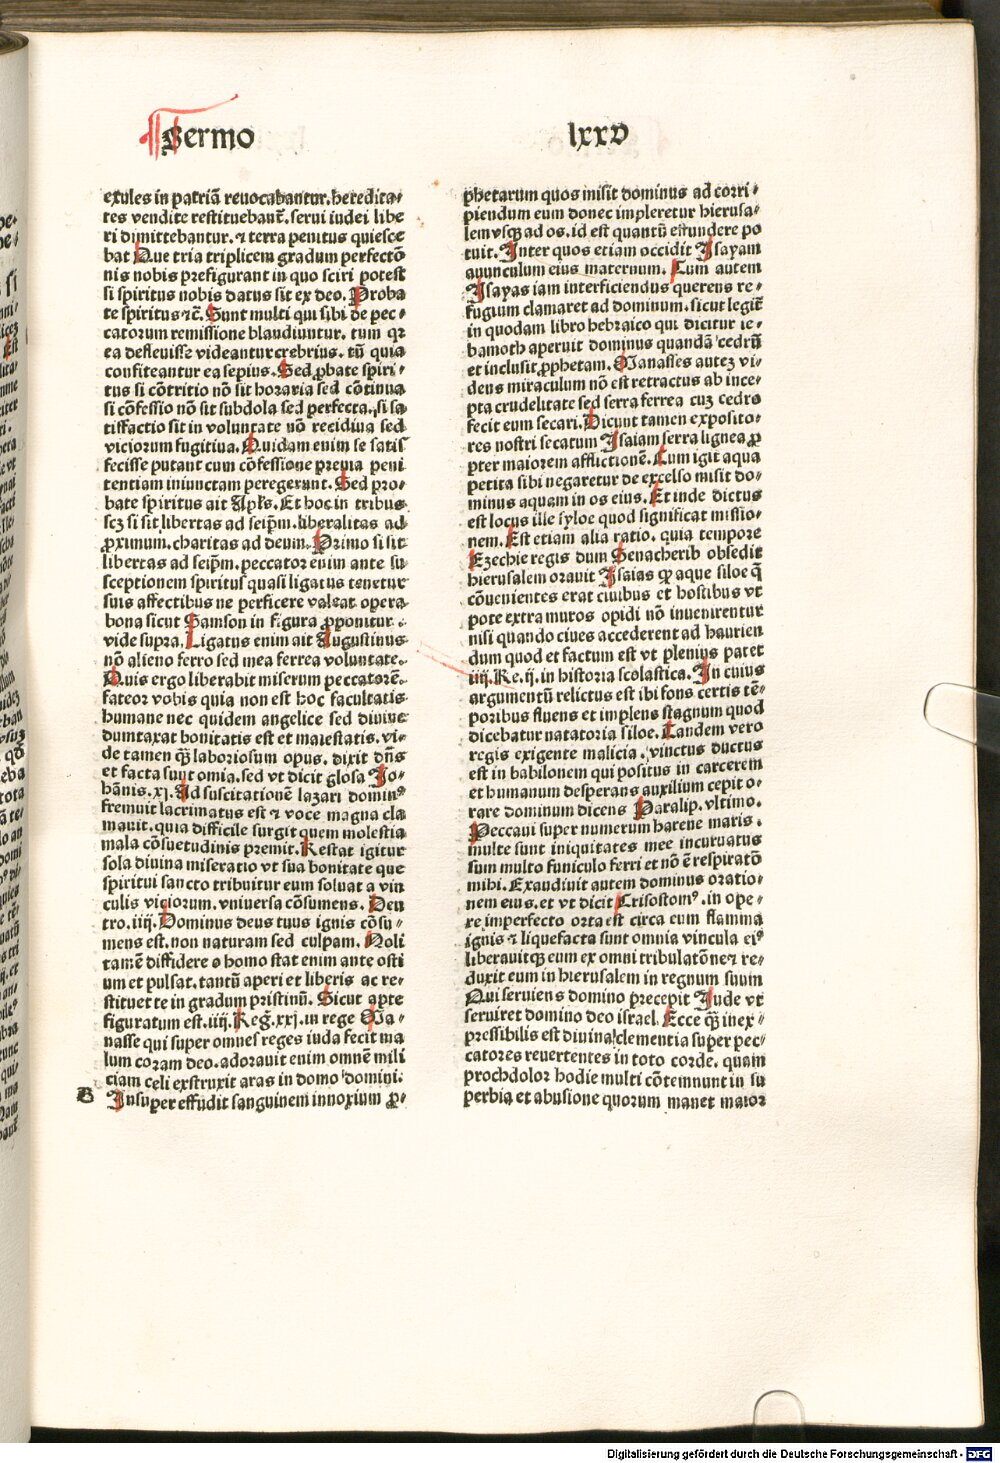 Sermo
lxxv
exules in patriā reuocabantur. heredita⸗
tes vendite restituebant̄. serui iudei libe
ri dimittebantur. ⁊ terra penitus quiesce
bat Que tria triplicem gradum perfectō
nis nobis prefigurant in quo sciri potest
si spiritus nobis datus sit ex deo. Proba
te spiritus ⁊c̄. Sunt multi qui sibi de pec⸗
catorum remissione blandiuntur. tum qꝛ
ea defleuisse videantur crebrius. tū quia
confiteantur ea sepius. Sed ꝓbate spiri⸗
tus si cōtritio nō sit horaria sed cōtinua
si cōfessio nō sit subdola sed perfecta. si sa
tiffactio sit in voluntate nō recidiua sed
viciorum fugitiua. Quidam enim se satis
fecisse putant cum cōfessione preuia peni
tentiam iniunctam peregerunt. Sed pro⸗
bate spiritus ait Apl̄s. Et hoc in tribus
scꝫ si sit libertas ad seip̄m. liberalitas ad
ꝓximum. charitas ad deum. Primo si sit
libertas ad seip̄m. peccator enim ante su⸗
sceptionem spiritus quasi ligatus tenetur
suis affectibus ne perficere valeat opera
bona sicut Samson in figura ꝓponitur.
vide supra. Ligatus enim ait Augustinus
nō alieno ferro sed mea ferrea voluntate.
Quis ergo liberabit miserum peccatorē.
fateor vobis quia non est hoc facultatis
humane nec quidem angelice sed diuine
dumtaxat bonitatis est et maiestatis. vi⸗
de tamen qꝫ̄ laboriosum opus. dixit dn̄s
et facta sunt omīa. sed vt dicit glosa Jo⸗
hānis. xj. Ad suscitationē lazari dominꝰ
fremuit lacrimatus est ⁊ voce magna cla
mauit. quia difficile surgit quem molestia
mala cōsuetudinis premit. Restat igitur
sola diuina miseratio vt sua bonitate que
spiritui sancto tribuitur eum soluat a vin
culis viciorum. vniuersa cōsumens. Deu
tro. iiij. Dominus deus tuus ignis cōsu⸗
mens est. non naturam sed culpam. Noli
tamē diffidere o homo stat enim ante osti
um et pulsat. tantū aperi et liberis ac re⸗
stituet te in gradum pristinū. Sicut apte
figuratum est. iiij. Reḡ. xxj. in rege Ma⸗
nasse qui super omnes reges iuda fecit ma
lum coram deo. adorauit enim omnē mili
ciam celi exstruxit aras in domo domini.
B
Insuper effudit sanguinem innoxium ꝓ⸗
phetarum quos misit dominus ad corri⸗
piendum eum donec impleretur hierusa⸗
lem vsqꝫ ad os. id est quantū effundere po
tuit. Inter quos etiam occidit Isayam
auunculum eius maternum. Cum autem
Isayas iam interficiendus querens re⸗
fugium clamaret ad dominum. sicut legit̄
in quodam libro hebraico qui dicitur ie⸗
bamoth aperuit dominus quandā cedrū
et inclusit ꝓphetam. Manasses autez vi⸗
deus miraculum nō est retractus ab ince⸗
pta crudelitate sed serra ferrea cuz cedro
fecit eum secari. Dicunt tamen exposito⸗
res nostri secatum Isaiam serra lignea ꝓ
pter maiorem afflictionē. Cum igit̄ aqua
petita sibi negaretur de excelso misit do⸗
minus aquam in os eius. Et inde dictus
est locus ille syloe quod significat missio⸗
nem. Est etiam alia ratio. quia tempore
Ezechie regis dum Senacherib obsedit
hierusalem orauit Isaias ꝙ aque siloe q̄
cōuenientes erāt ciuibus et hostibus vt
pote extra muros opidi nō inuenirentur
nisi quando ciues accederent ad haurien
dum quod et factum est vt plenius patet
iiij. Re. ij. in historia scolastica. In cuius
argumentū relictus est ibi fons certis tē⸗
poribus fluens et implens stagnum quod
dicebatur natatoria siloe. Tandem vero
regis exigente malicia. vinctus ductus
est in babilonem qui positus in carcerem
et humanum desperans auxilium cepit o⸗
rare dominum dicens Paralip. vltimo.
Peccaui super numerum harene maris.
multe sunt iniquitates mee incuruatus
sum multo funiculo ferri et nō ē respiratō
mihi. Exaudiuit autem dominus oratio⸗
nem eius. et vt dicit Crisostomꝰ. in ope⸗
re imperfecto orta est circa eum flamma
ignis ⁊ liquefacta sunt omnia vincula eiꝰ
liberauitqꝫ eum ex omni tribulatōne ⁊ re⸗
duxit eum in hierusalem in regnum suum
Qui seruiens domino precepit Jude vt
seruiret domino deo israel. Ecce qꝫ̄ inex⸗
pressibilis est diuina clementia super pec⸗
catores reuertentes in toto corde. quam
prochdolor hodie multi cōtemnunt in su
perbia et abusione quorum manet maior
Digitalisierung gefördert durch die Deutsche Forschungsgemeinschaft - DFG